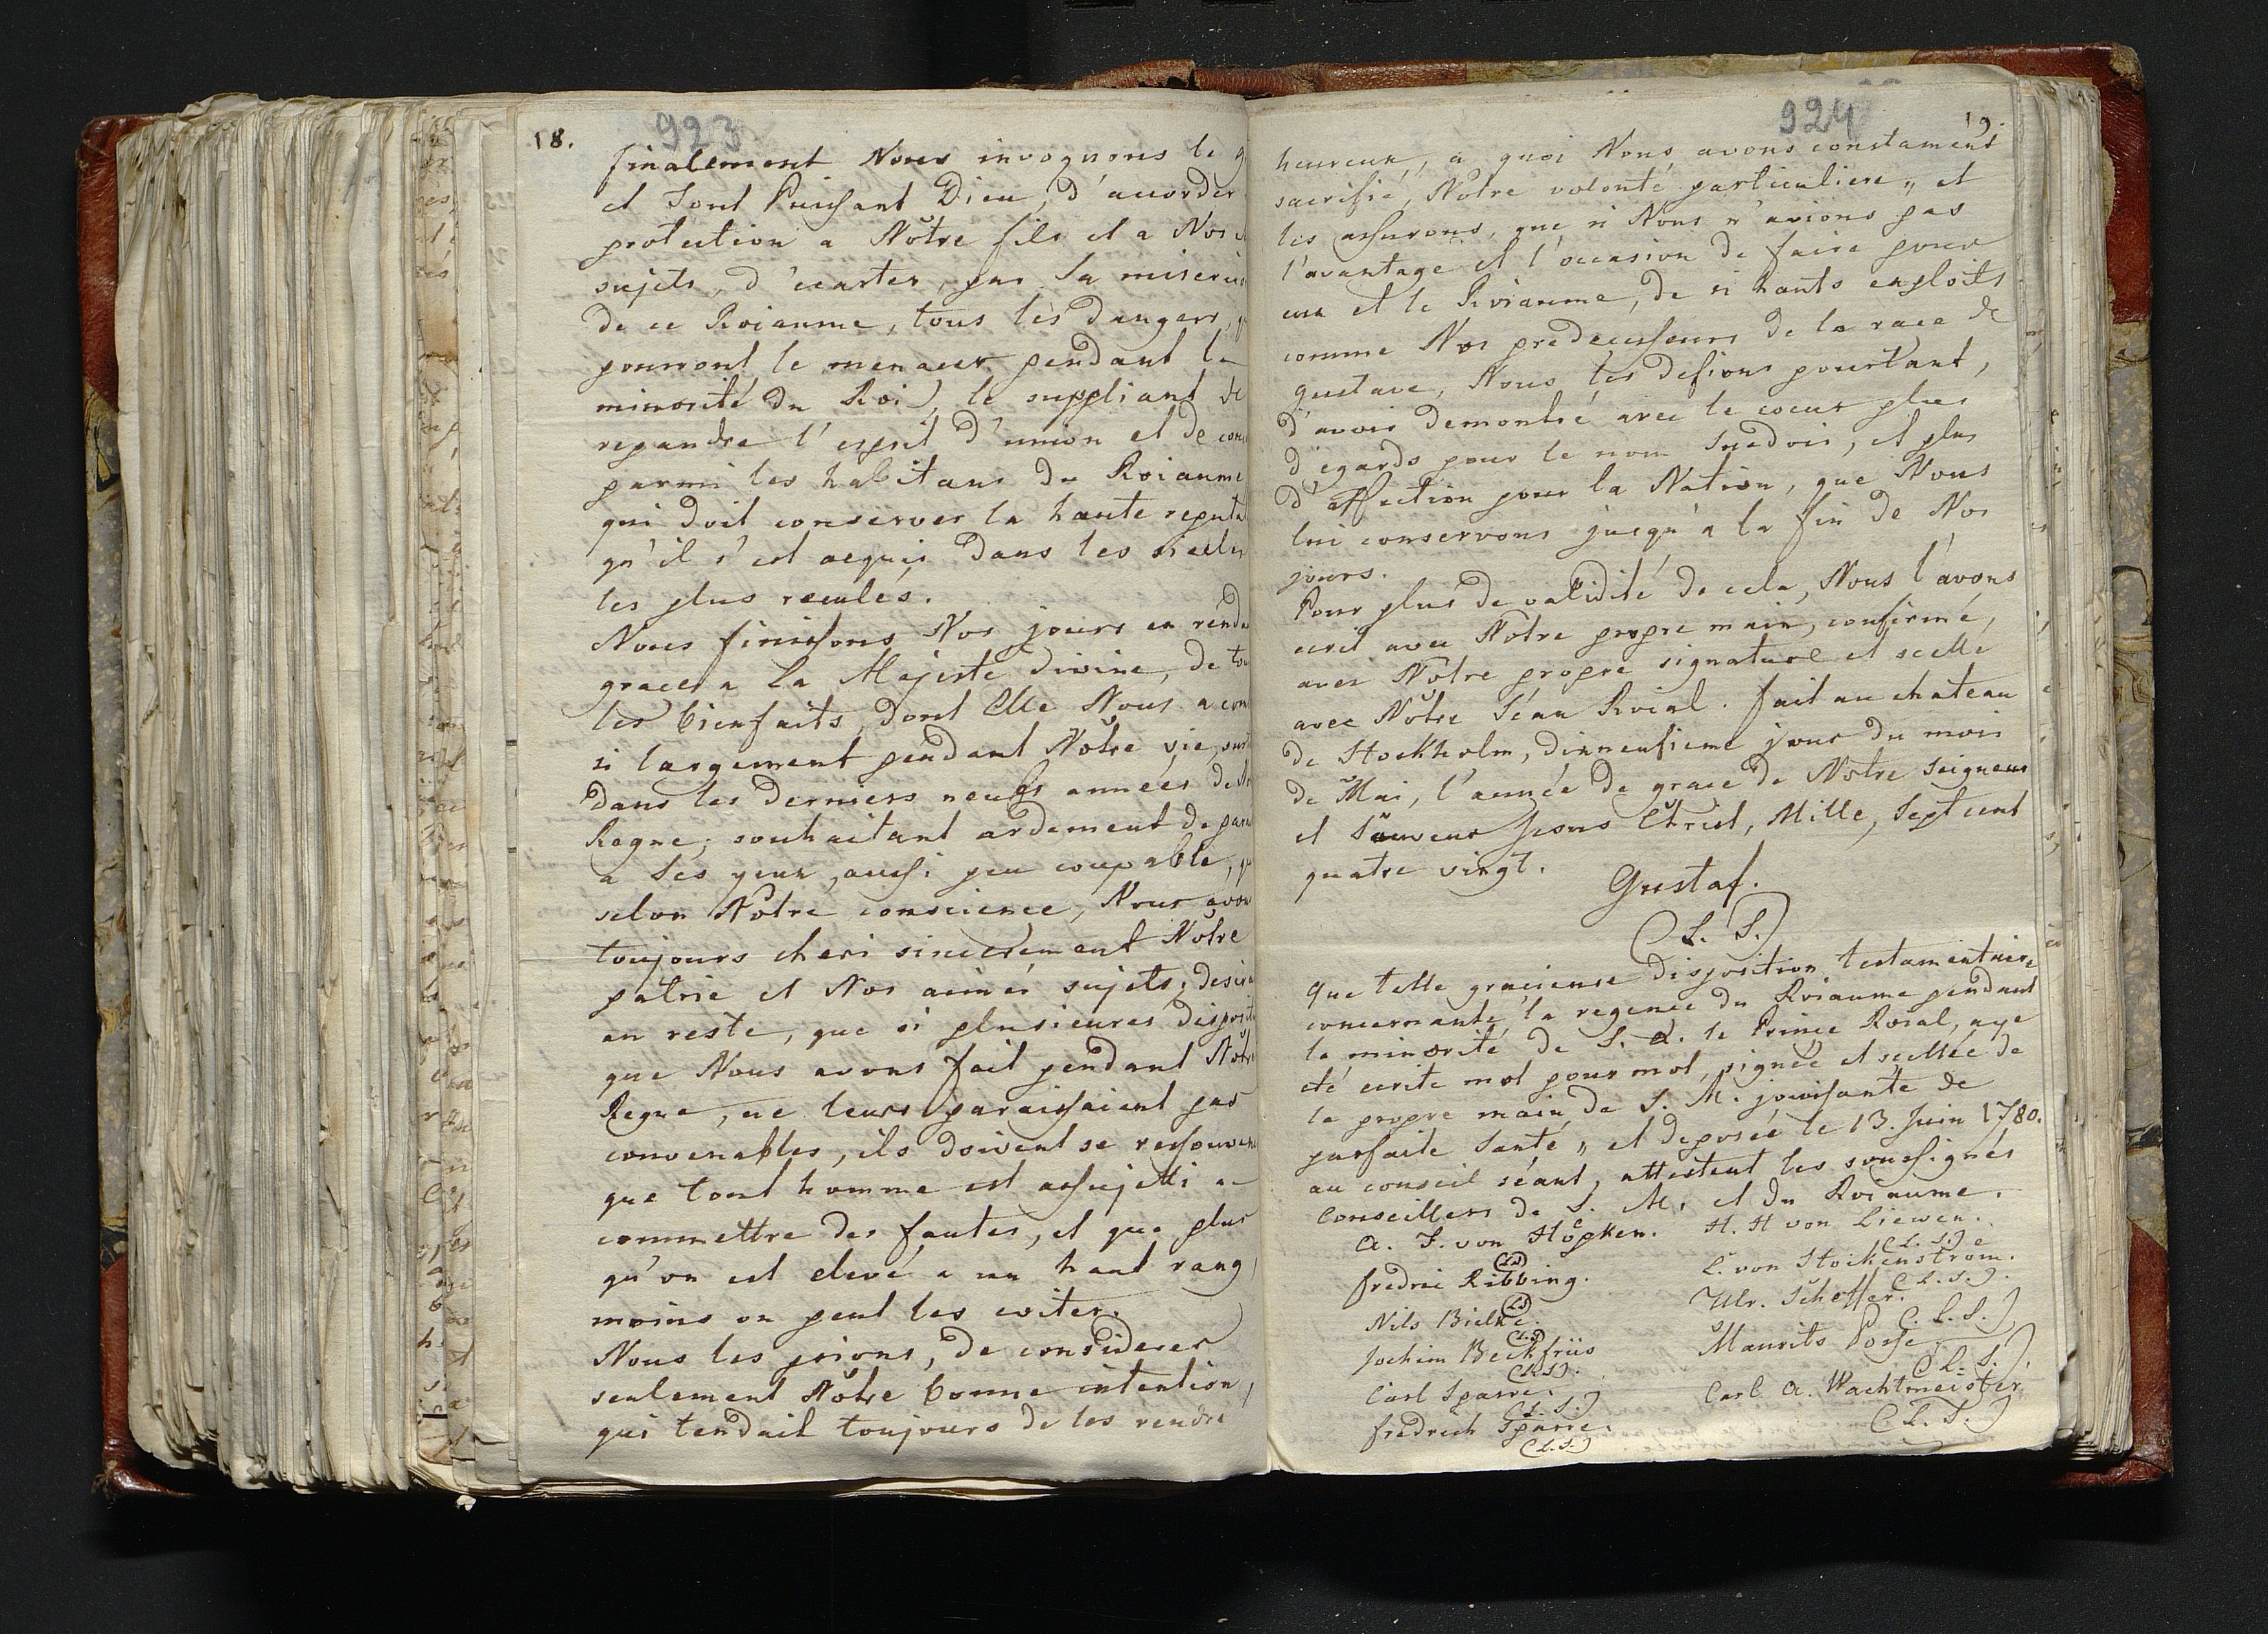 18. 923
finalement Nous invoquons le g
et Tout Puissant Dieu, d'accorder
protection a Nôtre fils et a Nos
sujets, d'ecarter, par sa miserico
de ce Roiaume, tous les dangers, q
pourront le menacer pendant la
minorité du Roi), le suppliant de
repandre l'esprit d'union et de conc
parmi les habitans du Roiaume
qui doit conserver la haute reputa
qu'il s'est acquis dans les siecles
les plus reculés.
Nous finissons Nos jours en renda
graces a La Majeste divine, de tou
les bienfaits, dont Elle Nous a com
si largement pendant Nôtre vie, surt
dans les derniers neufs années de No
Regne; souhaitant ardement de par
a Ses yeux, aussi peu coupable, q
selon Nôtre conscience, Nous avon
toujours cheri sincerement Nôtre
patrie et Nos aimés sujets; desira
au reste, que si plusieures disposit
que Nous avons fait pendant Notr
Regne, ne leurs paraissaient pas
convenables, ils doivent se ressouven
que tout homme est assujetti a
commettre des fautes, et que plus
qu'on est elevé a un haut rang,
moins on peut les eviter.
Nous les prions, de considerer
seulement Nôtre bonne intention,
qui tendait toujours de les rendre
924 19.
heureux, a quoi Nous avons constament
sacrifié, Nôtre volonté particuliere, et
les assurons, que si Nous n'avions pas
l'avantage et l'occasion de faire pour
eux et le Roiaume, de si hauts exploits
comme Nos predecesseurs de la race de
Gustave, Nous les defions pourtant,
d'avoir demontré avec le coeur plus
d'egards pour le nom Suedois, et plus
d'affection pour la Nation, que Nous
lui conservons jusqu'a la fin de Nos
jours.
Pour plus de validité de cela, Nous l'avons
ecrit avec Nôtre propre main, confirmé,
avec Nôtre propre signature et scellé
avec Nôtre Séau Roial. fait au chateau
de Stockholm, dixneufieme jour du mois
de Mai, l'année de grace de Nôtre Seigneur
et Sauveur Jesus Christ, Mille, Sept cent
quatre vingt.
Gustaf.
(L. S.)
Que telle gracieuse disposition testamentaire
concernante la regence du Roiaume pendant
la minorité de S. A. le Prince Roial, aye
eté ecrite mot pour mot, signée et scellée de
la propre main de S. M. jouissante de
parfaite Santé, et deposée le 13. Juin 1780.
au conseil séant, attestent les soussignés
Conseillers de S. M. et du Roiaume.
A. J. von Höpken. H. H von Liewen.
(LS) (L. S.)
fredric Ribbing. C. von Stockenstrom.
(LS) (L. S.).
Nils Bielke. Ulr. Scheffer.
(LS) (L. S.)
Jochim Beckfriis Mauritz Posse.
(LS). (L. S.)
Carl Sparre. Carl A. Wachtmeister
(L. S.) (L. S.)
fredrich Sparre.
(L. S.)